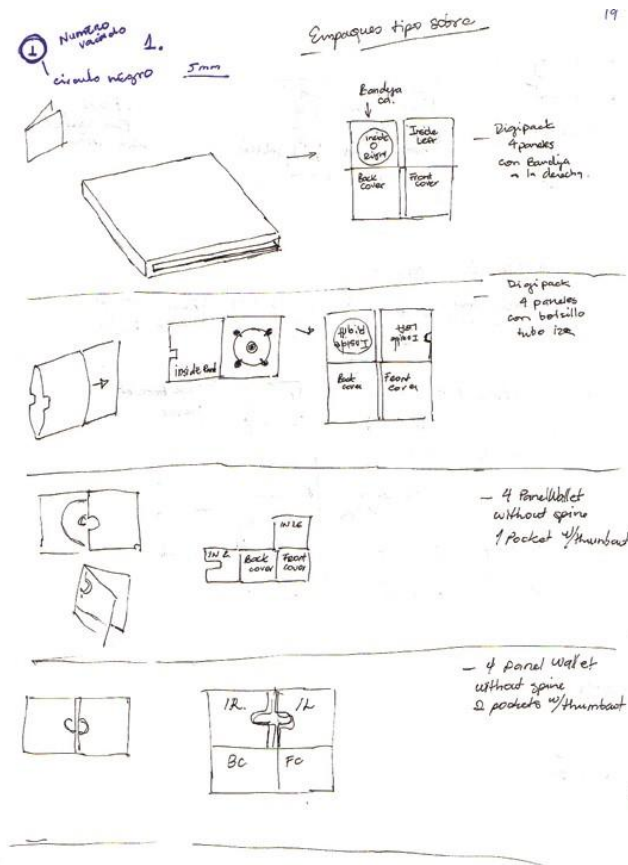 19
1 Numero vaciado 1.
circulo negro 5mm
Empaques tipo sobre
Bandeja
cd.
Inside
Right
Inside
Left
Back
cover
Front
cover
— Digipack
4 paneles
con Bandeja
a la derecha.
Digipack
4 paneles
con bolsillo
tubo izq
Inside
Right
Inside
Left
Back
cover
Front
cover
— 4 Panel Wallet
without spine
1 Pocket w/thumbcut
IN LE
IN R
Back
cover
Front
cover
— 4 panel wallet
without spine
2 pockets w/thumbcut
IR.
IL
BC
FC